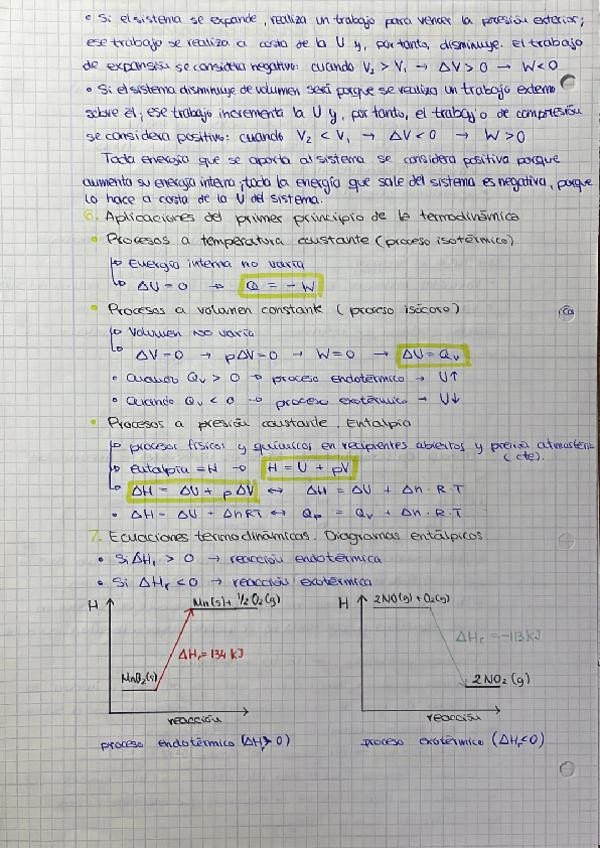 • Si el sistema se expande, realiza un trabajo para vencer la presión exterior;
ese trabajo se realiza a costa de la U y, por tanto, disminuye. El trabajo
de expansión se considera negativo: cuando V₂ > V₁ → ΔV > 0 → W < 0
• Si el sistema disminuye de volumen será porque se realiza un trabajo externo
sobre él; ese trabajo incrementa la U y, por tanto, el trabajo de compresión
se considera positivo: cuando V₂ < V₁ → ΔV < 0 → W > 0
Toda energía que se aporta al sistema se considera positiva porque
aumenta su energía interna; toda la energía que sale del sistema es negativa, porque
lo hace a costa de la U del sistema.
6. Aplicaciones del primer principio de la termodinámica
• Procesos a temperatura constante (proceso isotérmico)
↳ Energía interna no varía
↳ ΔU = 0 → Q = -W
• Procesos a volumen constante (proceso isócoro)
↳ Volumen no varía
↳ ΔV = 0 → pΔV = 0 → W = 0 → ΔU = Qᵥ
• Cuando Qᵥ > 0 → proceso endotérmico → U↑
• Cuando Qᵥ < 0 → proceso exotérmico → U↓
• Procesos a presión constante. Entalpía
↳ procesos físicos y químicos en recipientes abiertos y presión atmosférica
(cte).
↳ Entalpía = H → H = U + pV
↳ ΔH = ΔU + pΔV ↔ ΔH = ΔU + Δn · R · T
• ΔH = ΔU + ΔnRT ↔ Qp = Qᵥ + Δn · R · T
7. Ecuaciones termodinámicas. Diagramas entálpicos
• Si ΔHr > 0 → reacción endotérmica
• Si ΔHr < 0 → reacción exotérmica
H
Mn(s) + ½ O₂(g)
ΔHr = 134 kJ
MnO₂(s)
reacción
proceso endotérmico (ΔHr > 0)
H
2NO(g) + O₂(g)
ΔHr = -113 kJ
2NO₂(g)
reacción
proceso exotérmico (ΔHr < 0)